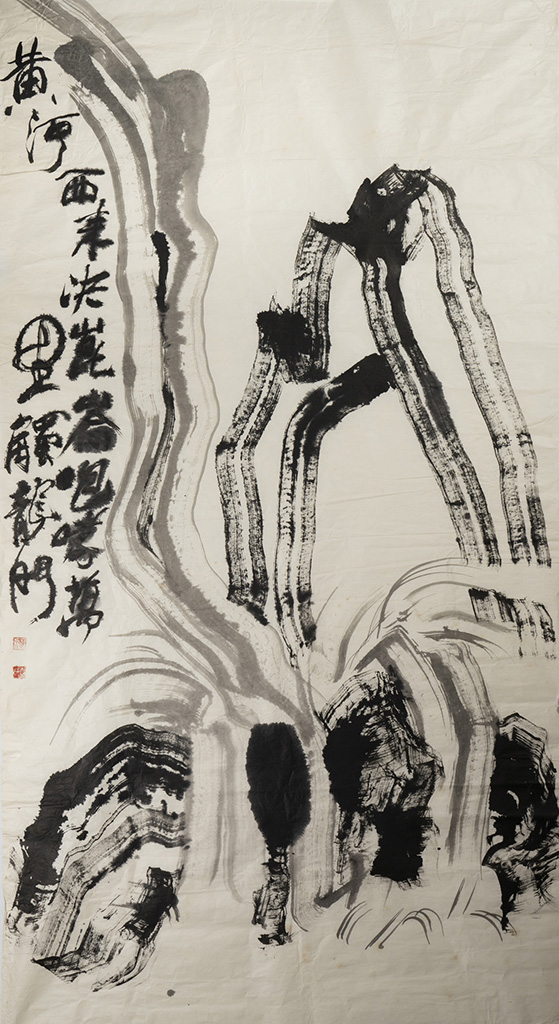 黄河西来決崑崙咆哮萬
里觸龍門